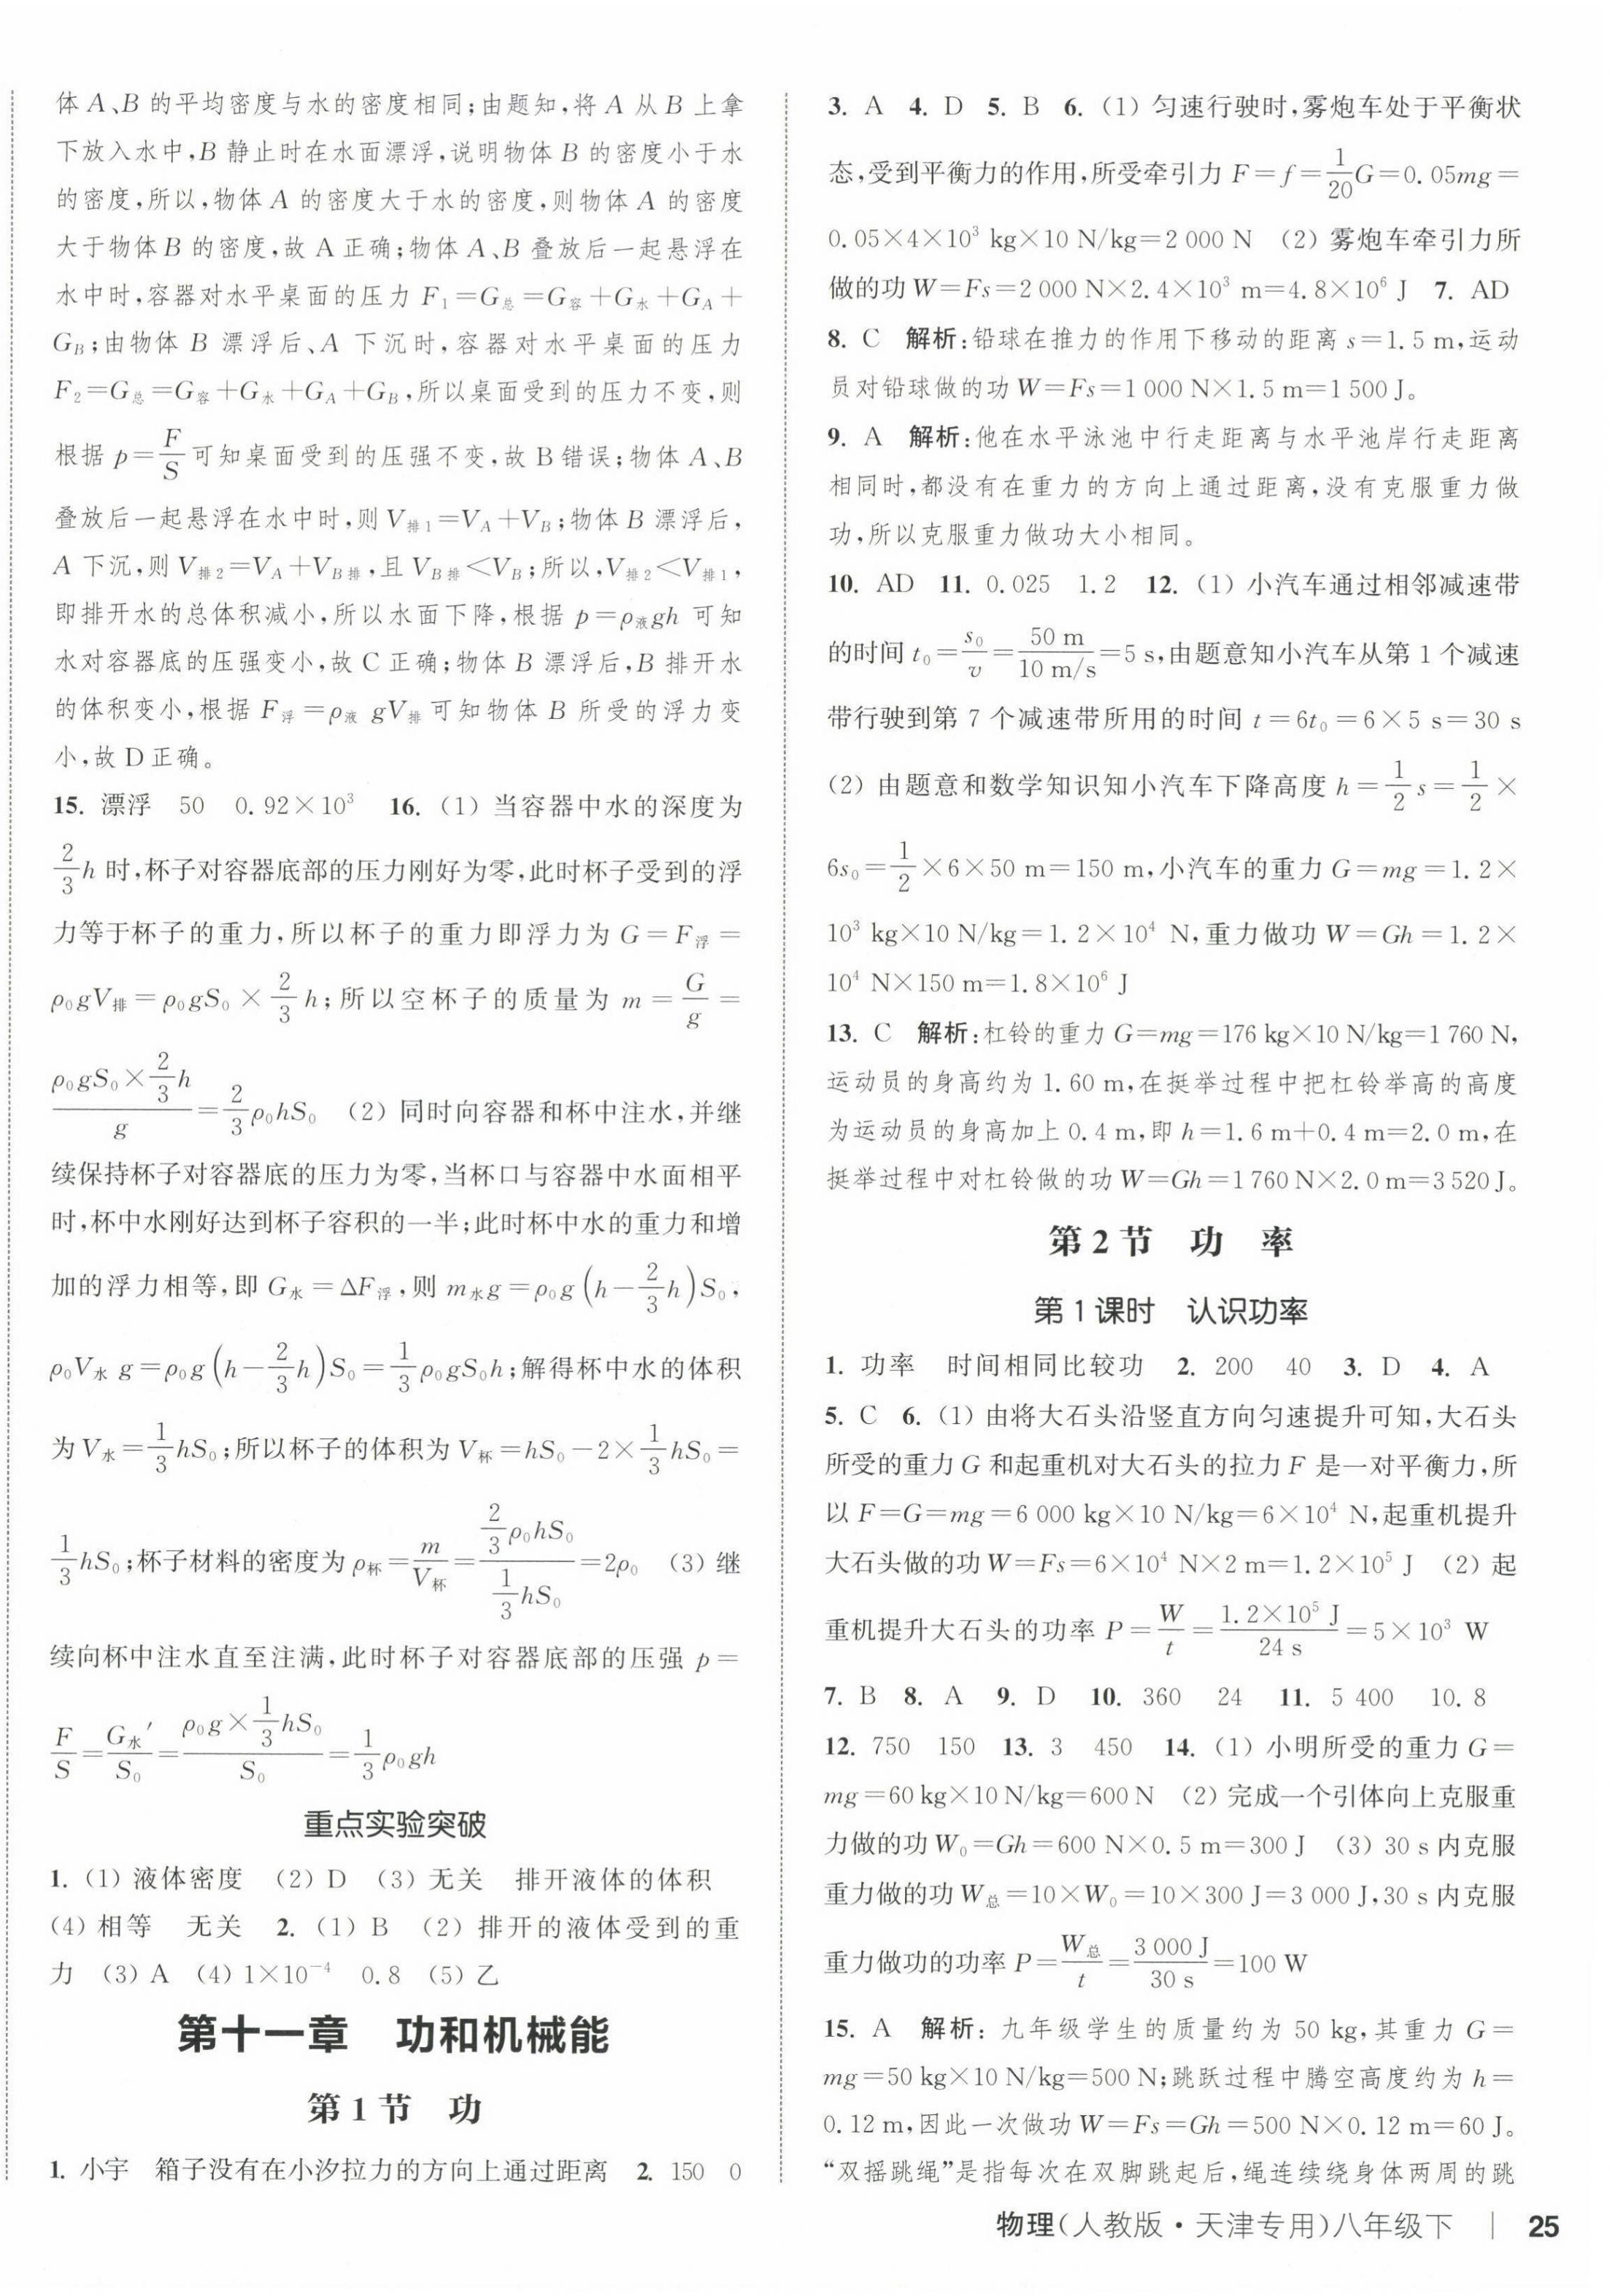 体A、B的平均密度与水的密度相同;由题知,将A从B上拿
下放入水中,B静止时在水面漂浮,说明物体B的密度小于水
的密度,所以,物体A的密度大于水的密度,则物体A的密度
大于物体B的密度,故A正确;物体A、B叠放后一起悬浮在
水中时,容器对水平桌面的压力F₁=G总=G容+G水+G_A+
G_B;由物体B漂浮后、A下沉时,容器对水平桌面的压力
F₂=G总=G容+G水+G_A+G_B,所以桌面受到的压力不变,则
根据p=F/S可知桌面受到的压强不变,故B错误;物体A、B
叠放后一起悬浮在水中时,则V排1=V_A+V_B;物体B漂浮后,
A下沉,则V排2=V_A+V_B排,且V_B排<V_B;所以,V排2<V排1,
即排开水的总体积减小,所以水面下降,根据p=ρ液gh可知
水对容器底的压强变小,故C正确;物体B漂浮后,B排开水
的体积变小,根据F浮=ρ液gV排可知物体B所受的浮力变
小,故D正确。
15. 漂浮 50 0.92×10³ 16. (1) 当容器中水的深度为
2/3 h时,杯子对容器底部的压力刚好为零,此时杯子受到的浮
力等于杯子的重力,所以杯子的重力即浮力为G=F浮=
ρ₀gV排=ρ₀gS₀×2/3 h;所以空杯子的质量为m=G/g=
(ρ₀gS₀×2/3 h)/g=2/3 ρ₀hS₀ (2) 同时向容器和杯中注水,并继
续保持杯子对容器底的压力为零,当杯口与容器中水面相平
时,杯中水刚好达到杯子容积的一半;此时杯中水的重力和增
加的浮力相等,即G水=ΔF浮,则m水g=ρ₀g(h-2/3 h)S₀,
ρ₀V水g=ρ₀g(h-2/3 h)S₀=1/3 ρ₀gS₀h;解得杯中水的体积
为V水=1/3 hS₀;所以杯子的体积为V杯=hS₀-2×1/3 hS₀=
1/3 hS₀;杯子材料的密度为ρ杯=m/V杯=(2/3 ρ₀hS₀)/(1/3 hS₀)=2ρ₀ (3) 继
续向杯中注水直至注满,此时杯子对容器底部的压强p=
F/S=G水′/S₀=(ρ₀g×1/3 hS₀)/S₀=1/3 ρ₀gh
重点实验突破
1. (1) 液体密度 (2) D (3) 无关 排开液体的体积
(4) 相等 无关 2. (1) B (2) 排开的液体受到的重
力 (3) A (4) 1×10⁻⁴ 0.8 (5) 乙
第十一章 功和机械能
第1节 功
1. 小宇 箱子没有在小汐拉力的方向上通过距离 2. 150 0
3. A 4. D 5. B 6. (1) 匀速行驶时,雾炮车处于平衡状
态,受到平衡力的作用,所受牵引力F=f=1/20 G=0.05mg=
0.05×4×10³ kg×10 N/kg=2 000 N (2) 雾炮车牵引力所
做的功W=Fs=2 000 N×2.4×10³ m=4.8×10⁶ J 7. AD
8. C 解析:铅球在推力的作用下移动的距离s=1.5 m,运动
员对铅球做的功W=Fs=1 000 N×1.5 m=1 500 J。
9. A 解析:他在水平泳池中行走距离与水平池岸行走距离
相同时,都没有在重力的方向上通过距离,没有克服重力做
功,所以克服重力做功大小相同。
10. AD 11. 0.025 1.2 12. (1) 小汽车通过相邻减速带
的时间t₀=s₀/v=50 m/10 m/s=5 s,由题意知小汽车从第1个减速
带行驶到第7个减速带所用的时间t=6t₀=6×5 s=30 s
(2) 由题意和数学知识知小汽车下降高度h=1/2 s=1/2×
6s₀=1/2×6×50 m=150 m,小汽车的重力G=mg=1.2×
10³ kg×10 N/kg=1.2×10⁴ N,重力做功W=Gh=1.2×
10⁴ N×150 m=1.8×10⁶ J
13. C 解析:杠铃的重力G=mg=176 kg×10 N/kg=1 760 N,
运动员的身高约为1.60 m,在挺举过程中把杠铃举高的高度
为运动员的身高加上0.4 m,即h=1.6 m+0.4 m=2.0 m,在
挺举过程中对杠铃做的功W=Gh=1 760 N×2.0 m=3 520 J。
第2节 功 率
第1课时 认识功率
1. 功率 时间相同比较功 2. 200 40 3. D 4. A
5. C 6. (1) 由将大石头沿竖直方向匀速提升可知,大石头
所受的重力G和起重机对大石头的拉力F是一对平衡力,所
以F=G=mg=6 000 kg×10 N/kg=6×10⁴ N,起重机提升
大石头做的功W=Fs=6×10⁴ N×2 m=1.2×10⁵ J (2) 起
重机提升大石头的功率P=W/t=1.2×10⁵ J/24 s=5×10³ W
7. B 8. A 9. D 10. 360 24 11. 5 400 10.8
12. 750 150 13. 3 450 14. (1) 小明所受的重力G=
mg=60 kg×10 N/kg=600 N (2) 完成一个引体向上克服重
力做的功W₀=Gh=600 N×0.5 m=300 J (3) 30 s内克服
重力做的功W总=10×W₀=10×300 J=3 000 J,30 s内克服
重力做功的功率P=W总/t=3 000 J/30 s=100 W
15. A 解析:九年级学生的质量约为50 kg,其重力G=
mg=50 kg×10 N/kg=500 N;跳跃过程中腾空高度约为h=
0.12 m,因此一次做功W=Fs=Gh=500 N×0.12 m=60 J。
“双摇跳绳”是指每次在双脚跳起后,绳连续绕身体两周的跳
物理(人教版·天津专用)八年级下 | 25